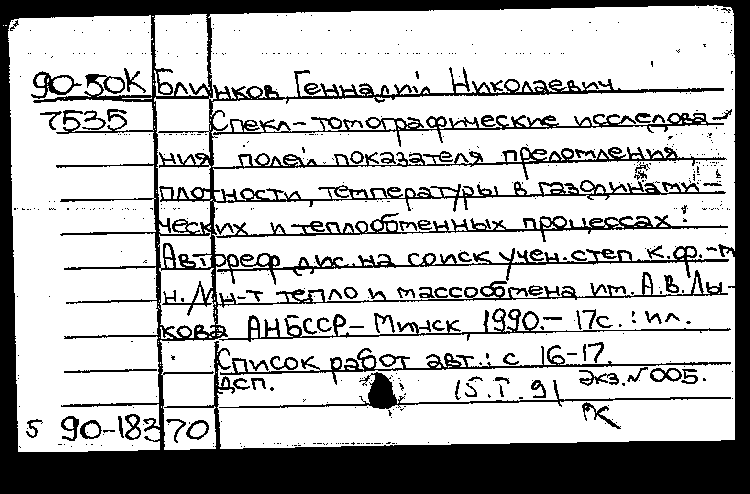 90-50К Блинков, Геннадий Николаевич.
7535 Спекл-томографические исследова-
ния полей показателя преломления,
плотности, температуры в газодинами-
ческих и теплообменных процессах:
Автореф дис. на соиск учен. степ. к.ф.-м
н. /Ин-т тепло и массообмена им. А.В. Лы-
кова АНБССР.- Минск, 1990.- 17с.: ил.
Список работ авт.: с 16-17.
ДСП. 15.I.91 Экз. N 005.
5 90-18370